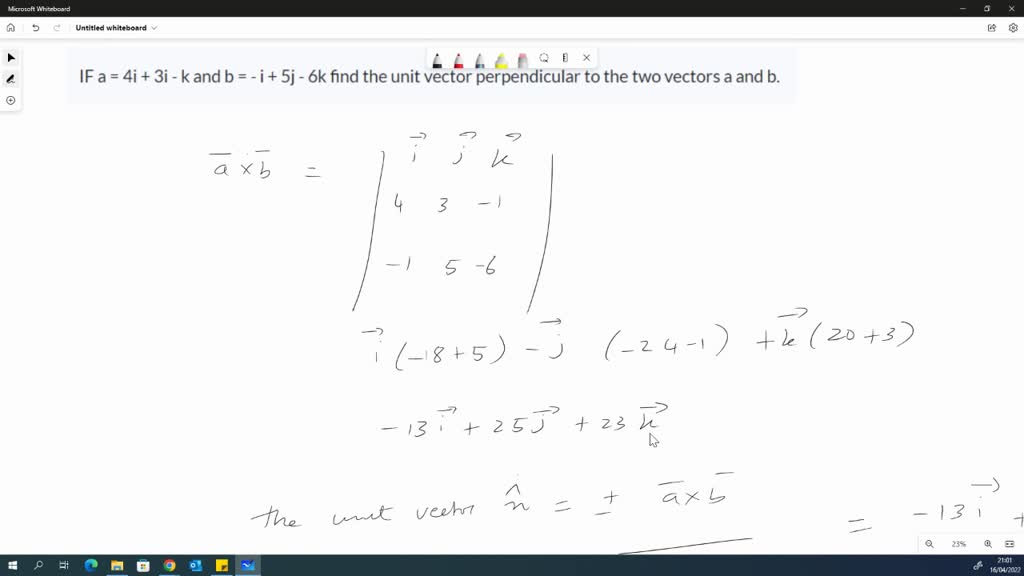 Microsoft Whiteboard
Untitled whiteboard
IF a = 4i + 3i - k and b = - i + 5j - 6k find the unit vector perpendicular to the two vectors a and b.
a × b = | i j k
4 3 -1
-1 5 -6 |
i (-18 + 5) - j (-24 - 1) + k (20 + 3)
-13 i + 25 j + 23 k
the unit vector n̂ = ± a × b = -13 i +
23%
21:01
16/04/2022